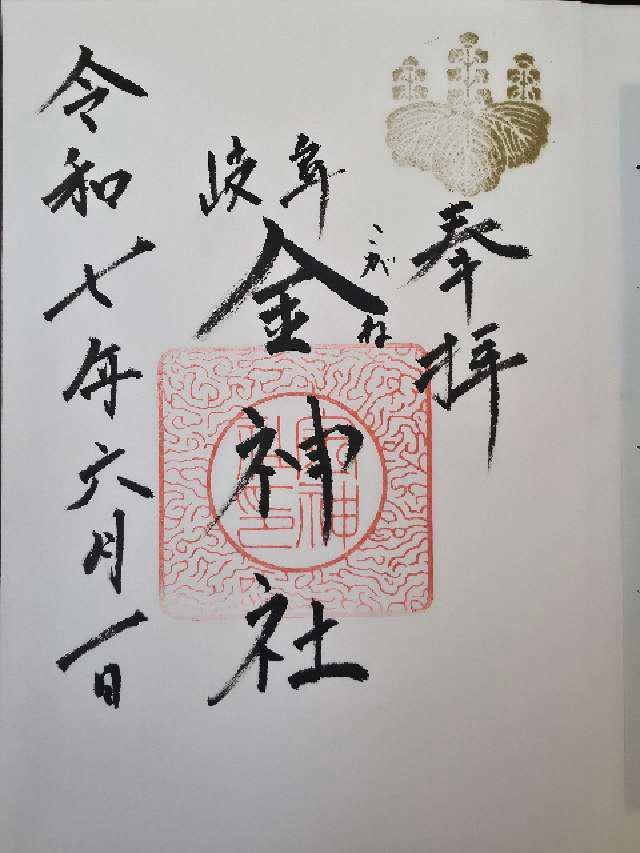 奉拝
岐阜
こがね
金神社
令和七年六月一日